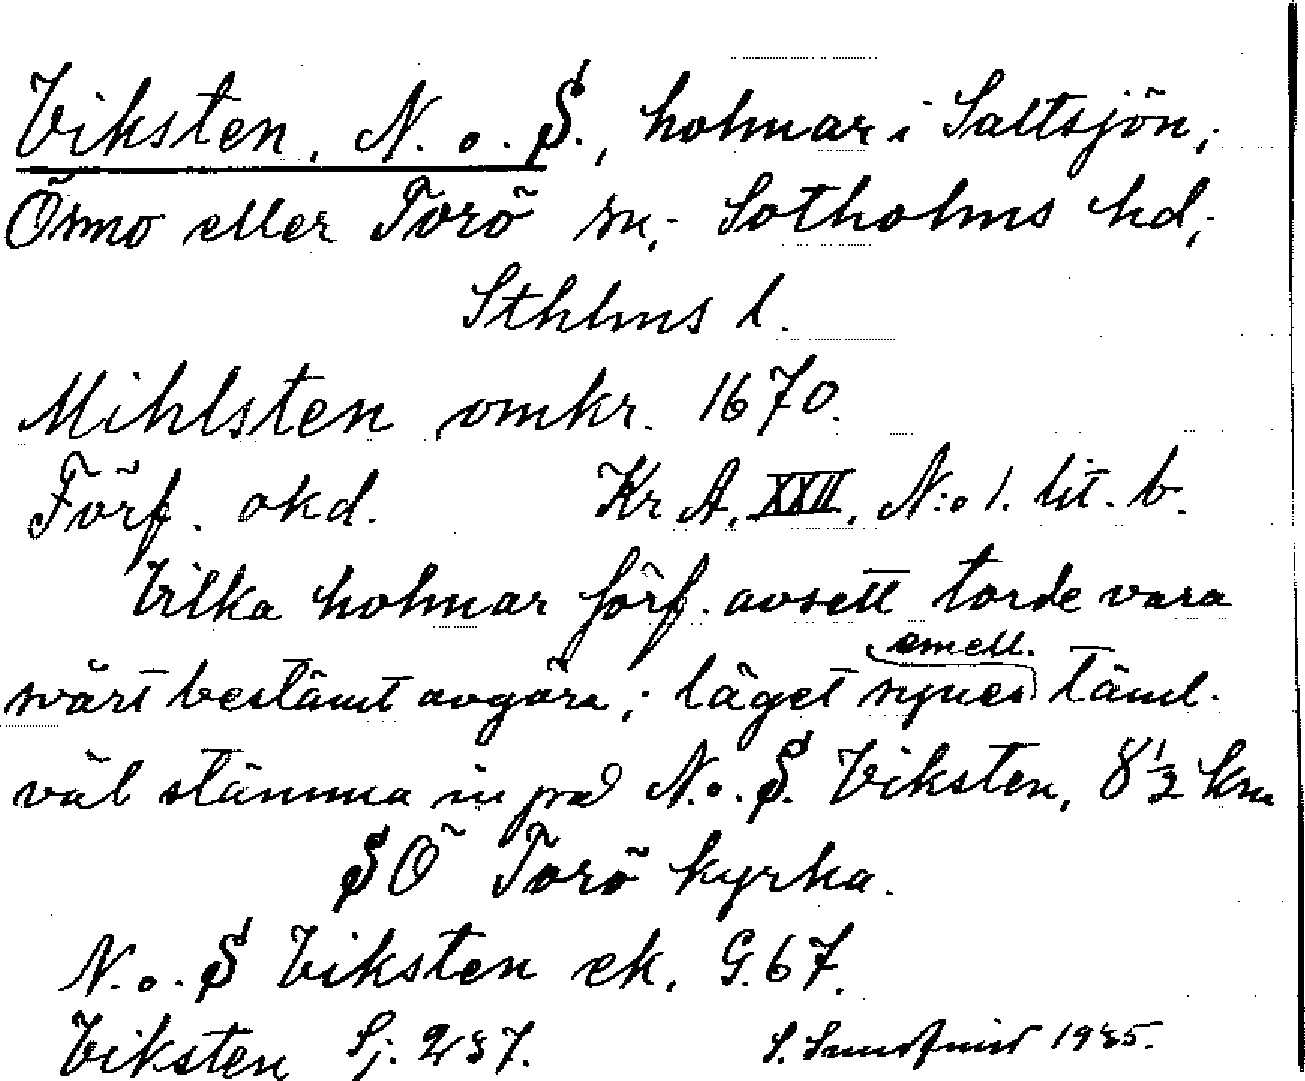 Viksten, N. o. S., holmar i Saltsjön,
Ösmo eller Torö sn, Sotholms hd,
Sthlms l.
Mihlsten omkr. 1670.
Förf. okd. Kr A. XXII, N:o 1. lit. b.
Vilka holmar förf. avsett torde vara
svårt bestämt avgöra; läget synes emell. täml.
väl stämma in på N. o. S. Viksten, 8 1/2 km
SÖ Torö kyrka.
N. o. S Viksten ek. G. 67.
Viksten Sj. 237. 1935.